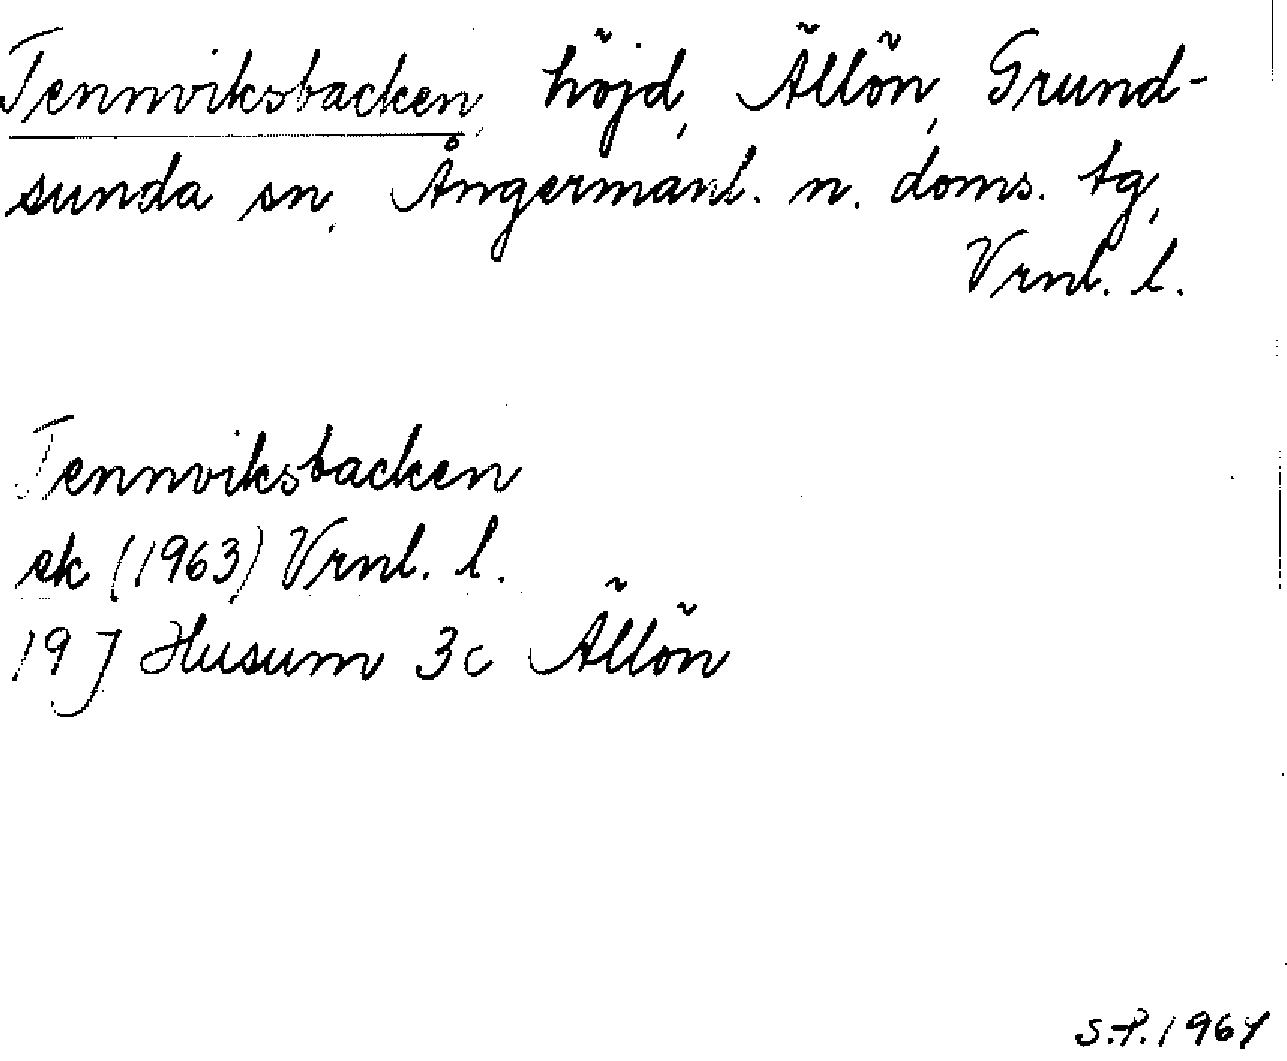 Tennviksbacken, höjd, Ällön, Grund-
sunda sn, Ångermanl. n. doms. tg,
Vrnl. l.
Tennviksbacken
ek (1963) Vrnl. l.
19 J Husum 3c Ällön
S.P. 1964